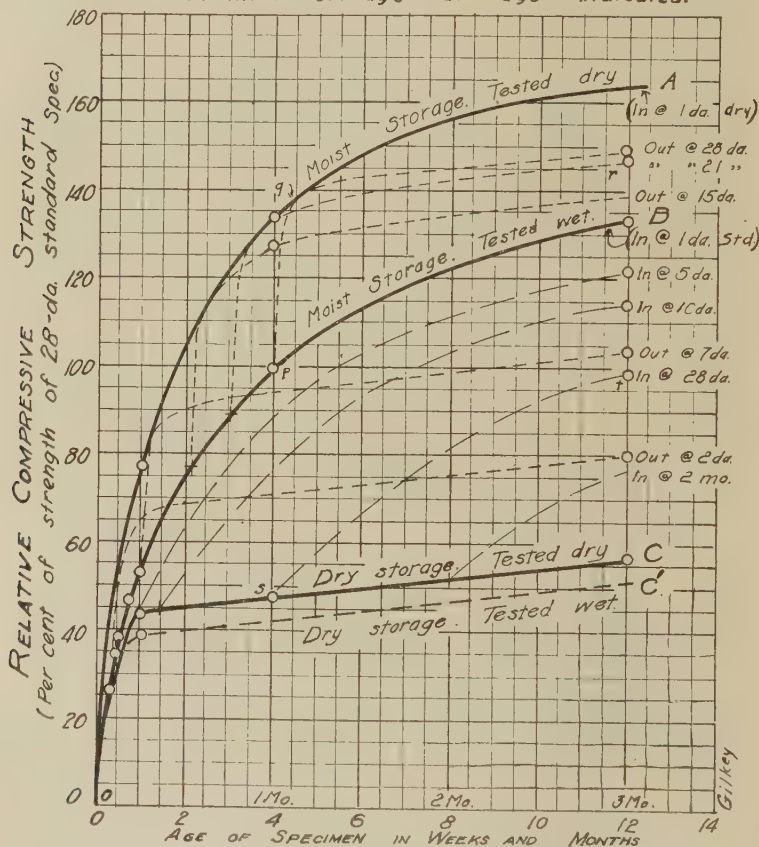 Storage Indicated.
RELATIVE COMPRESSIVE STRENGTH
(Per cent of strength of 28-da. standard Spec.)
180
160
140
120
100
80
60
40
20
0
Moist Storage. Tested dry
A
(In @ 1 da. dry)
Out @ 28 da.
" " 21 "
r
Out @ 15 da.
q
Moist Storage. Tested wet.
B
(In @ 1 da. Std)
In @ 5 da.
In @ 10 da.
Out @ 7 da.
In @ 28 da.
t
p
Out @ 2 da.
In @ 2 mo.
s
Dry storage. Tested dry
C
Dry storage. Tested wet.
C'
0 1 Mo. 2 Mo. 3 Mo.
0 2 4 6 8 10 12 14
AGE OF SPECIMEN IN WEEKS AND MONTHS
Gilkey